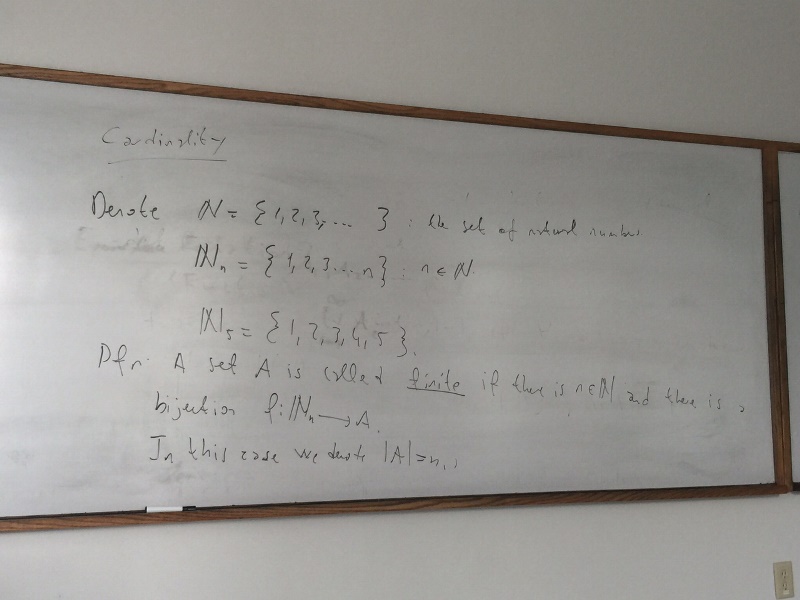 Cardinality
Denote ℕ = {1, 2, 3, ... } : the set of natural number
ℕₙ = {1, 2, 3 ... n} : n ∈ ℕ.
ℕ₅ = {1, 2, 3, 4, 5}.
Dfn: A set A is called finite if there is n ∈ ℕ and there is a
bijection f: ℕₙ → A.
In this case we denote |A| = n.